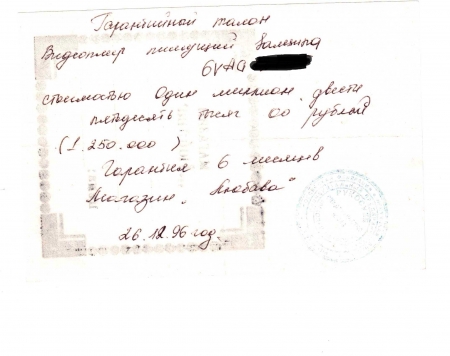 Гарантийный талон
Видеоплер пишущий
6VAD
стоимостью один миллион двести
пятдесять тысяч 00 рублей
(1.250.000)
Гарантия 6 месяцев
Магазин „Любава"
26.12.96 год.